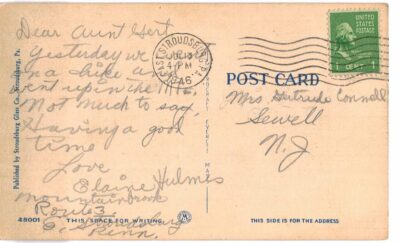 Dear Aunt Gert
Yesterday we
on a hike and
went up in the Mts.
Not much to say
Having a good
time
Love
Elaine Hulmes
Mountainbrook
Route 3
E. Stroudsburg
Penn.
Published by Stroudsburg Glass Co., Stroudsburg, Pa.
48001
THIS SPACE FOR WRITING
M
EAST STROUDSBURG, PA.
4 PM
1946
UNITED STATES
POSTAGE
1 CENT 1
POST CARD
Mrs. Gertrude Connell
Sewell
N.J
THIS SIDE IS FOR THE ADDRESS